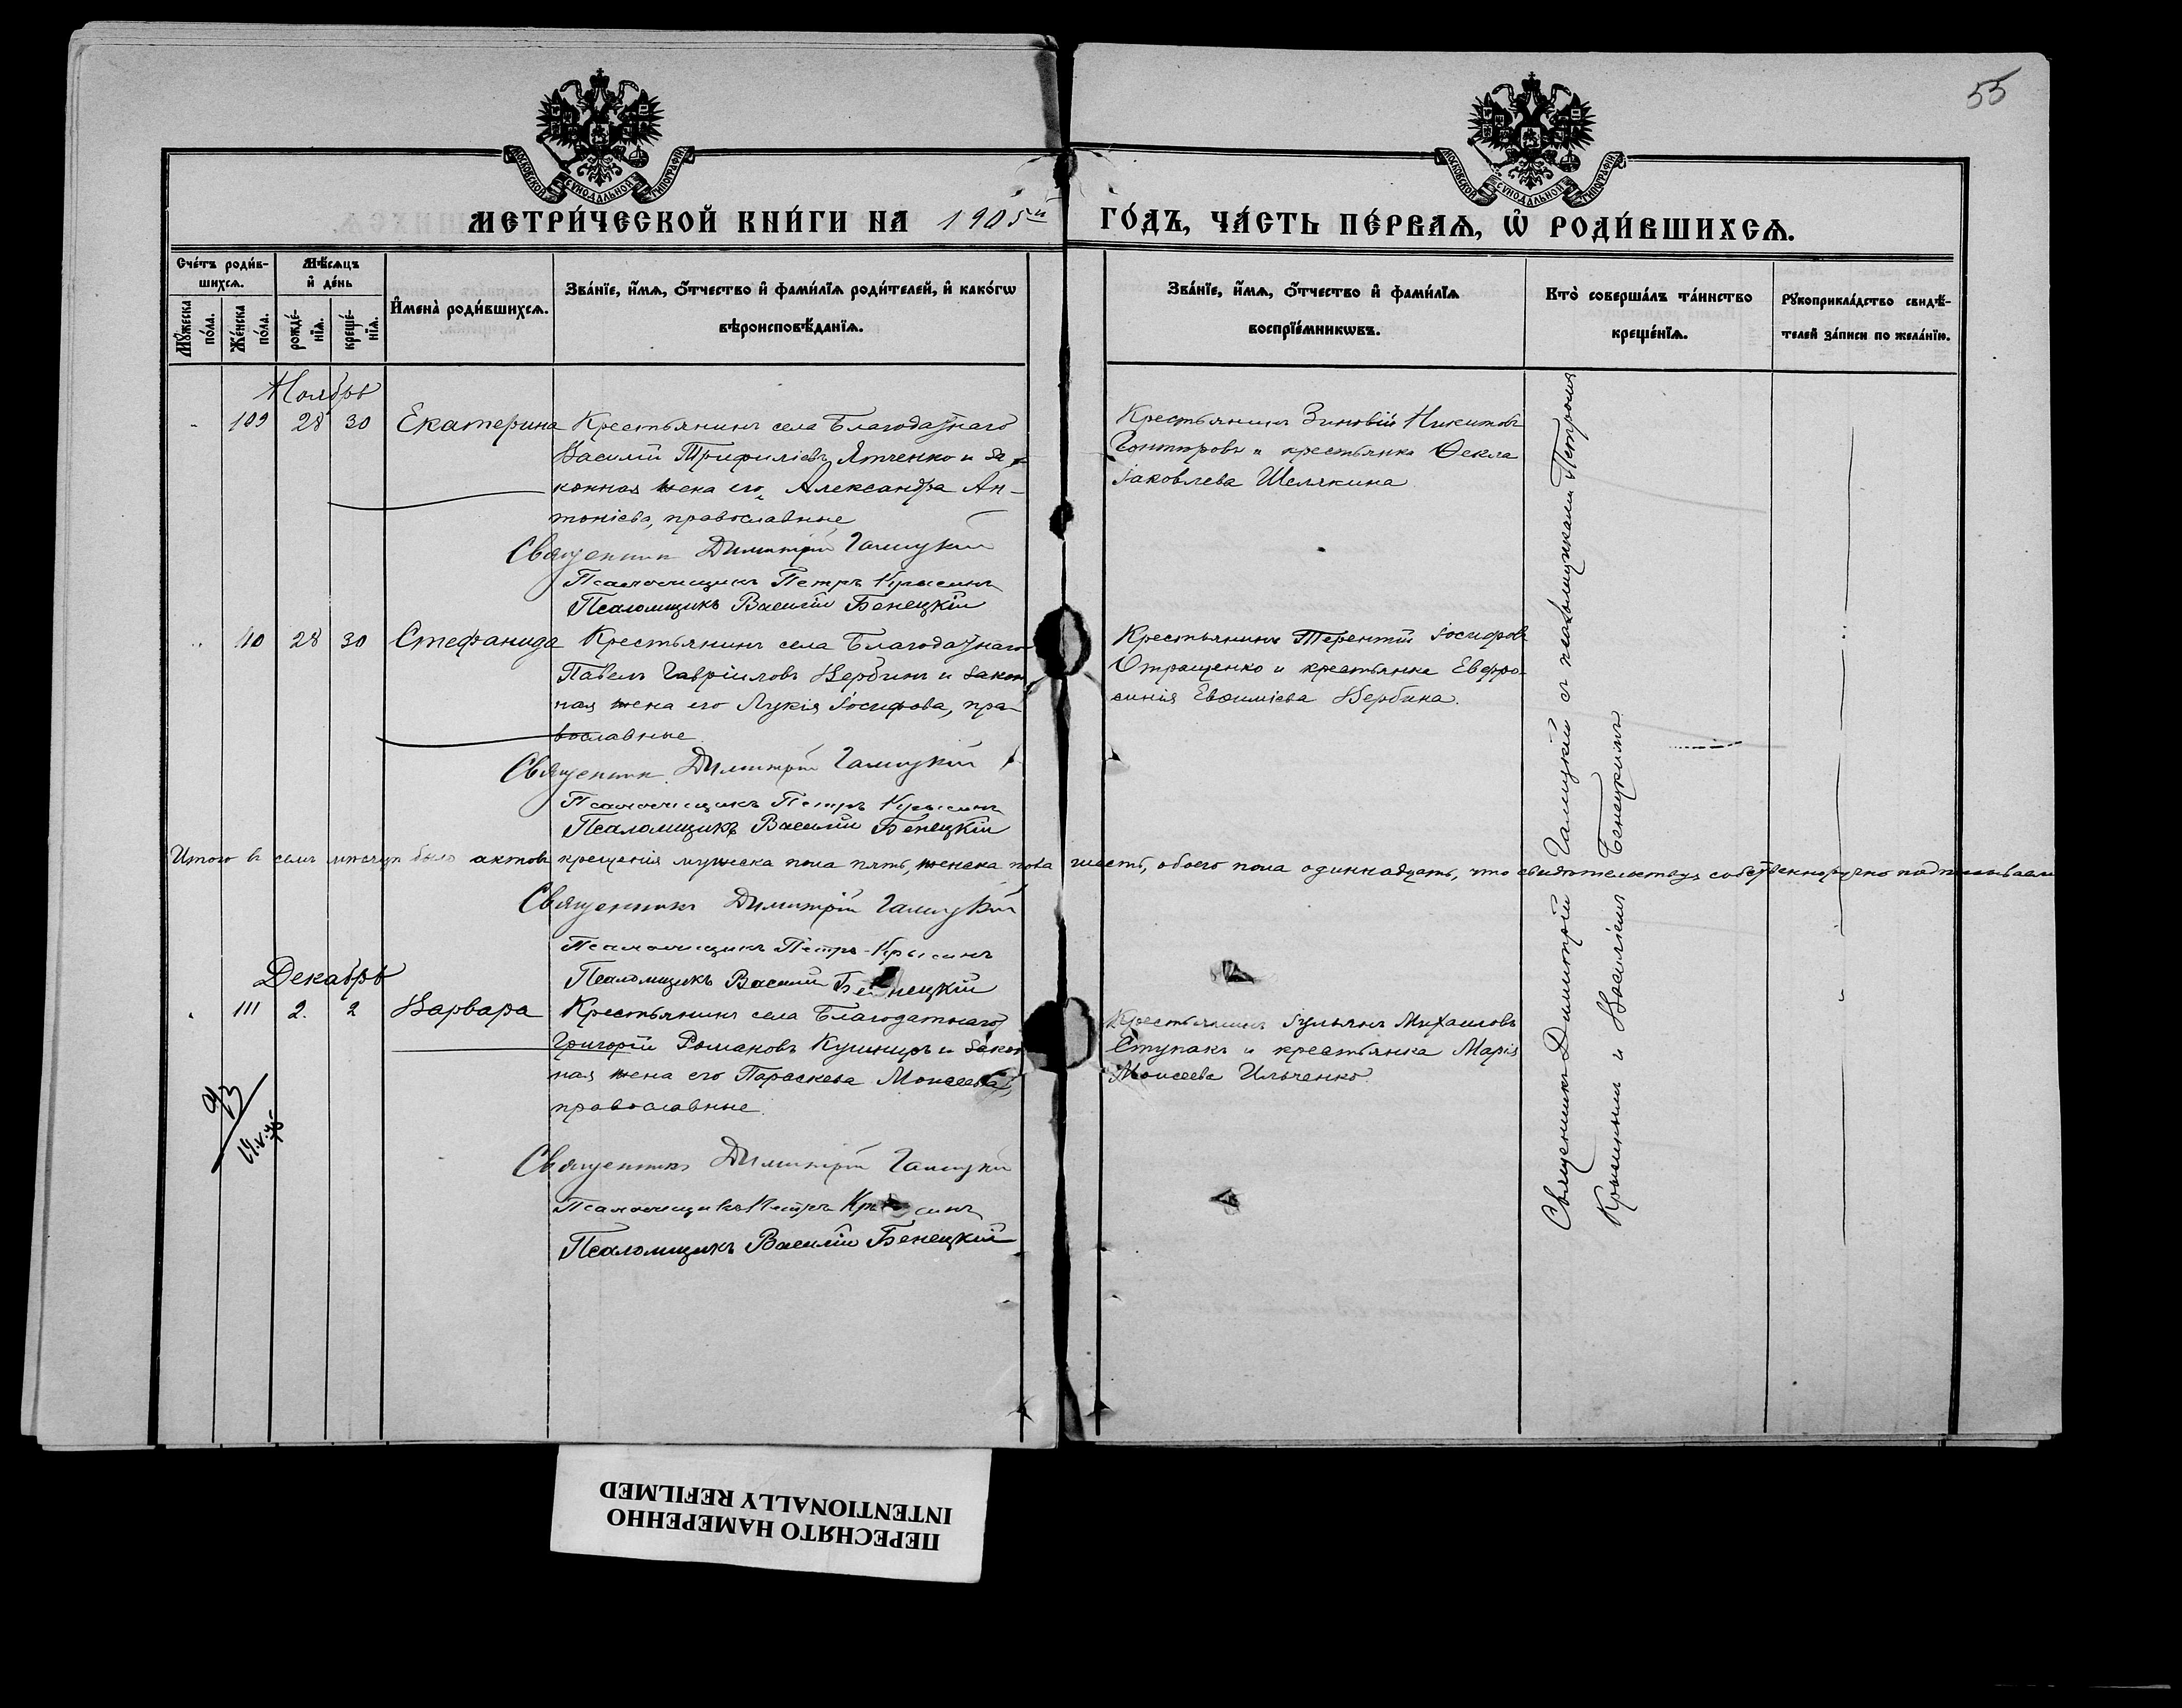 55
МОСКОВСКОЙ СУНОДАЛЬНОЙ ТИПОГРАФІИ
МОСКОВСКОЙ СУНОДАЛЬНОЙ ТИПОГРАФІИ
МЕТРИ́ЧЕСКОЙ КНИ́ГИ НА 1905й ГО́ДЪ, ЧА́СТЬ ПЕ́РВАѦ, Ѽ РОДИ́ВШИХСѦ.
Сче́тъ роди́в-
шихсѧ.
Мꙋ́жеска по́ла.
Же́нска по́ла.
Мѣ́сѧцъ
и҆ де́нь
рожде́-
нїѧ.
креще́-
нїѧ.
И҆мена̀ роди́вшихсѧ.
Зва́нїе, и҆́мѧ, ѻ҆́тчество и҆ фами́лїѧ роди́телей, и҆ како́гѡ
вѣроисповѣ́данїѧ.
Зва́нїе, и҆́мѧ, ѻ҆́тчество и҆ фами́лїѧ
воспрїе́мникѡвъ.
Кто̀ соверша́лъ та́инство
креще́нїѧ.
Рꙋкоприкла́дство свидѣ́-
телей за́писи по жела́нїю.
Ноябрь
109 28 30 Екатерина Крестьянинъ села Благодатнаго
Василій Трифиліевъ Ятченко и за-
конная жена его Александра Ан-
тоніева, православные
Крестьянинъ Зиновій Никитовъ
и крестьянка Ѳекла
Іаковлева Шелякина
Священникъ Димитрій Галицкій
Псаломщикъ Петръ Крысинъ
Псаломщикъ Василій Бенецкій
110 28 30 Стефанида Крестьянинъ села Благодатнаго
Павелъ Гавріиловъ Вербинъ и закон
ная жена его Лукія Іосифова, пра-
вославные
Крестьянинъ Терентій Іосифовъ
Отращенко и крестьянка Евфро-
синія Евѳиміева Вербина.
Священникъ Димитрій Галицкій
Псаломщикъ Петръ Крысинъ
Псаломщикъ Василій Бенецкій
Итого въ семъ мѣсяцѣ было актовъ крещенія мужеска пола пять, женска пола шесть, обоего пола одиннадцать, что свидѣтельствуя собственноручно подписываемъ
Священникъ Димитрій Галицкій
Псаломщикъ Петръ Крысинъ
Псаломщикъ Василій Бенецкій
Декабрь
111 2. 2 Варвара Крестьянинъ села Благодатнаго
Григорій Романовъ Кушниръ и закон
ная жена его Параскева Моисеева,
православные.
Крестьянинъ Іульянъ Михаиловъ
Ступакъ и крестьянка Марія
Моисеева Ильченко.
Священникъ Димитрій Галицкій
Псаломщикъ Петръ Крысинъ
Псаломщикъ Василій Бенецкій
Священникъ Димитрій Галицкій съ псаломщиками Петромъ
Крысинымъ и Василіемъ Бенецкимъ
ПЕРЕСНЯТО НАМЕРЕННО
INTENTIONALLY REFILMED